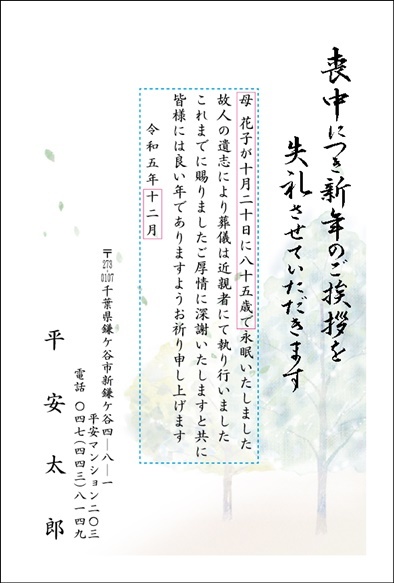 喪中につき新年のご挨拶を
失礼させていただきます
母 花子が十月二十日に八十五歳で永眠いたしました
故人の遺志により葬儀は近親者にて執り行いました
これまでに賜りましたご厚情に深謝いたしますと共に
皆様には良い年でありますようお祈り申し上げます
令和五年十二月
〒273
0107千葉県鎌ケ谷市新鎌ケ谷四―八―一
平安マンション二〇三
電話 〇四七(四四三)八一四九
平安太郎